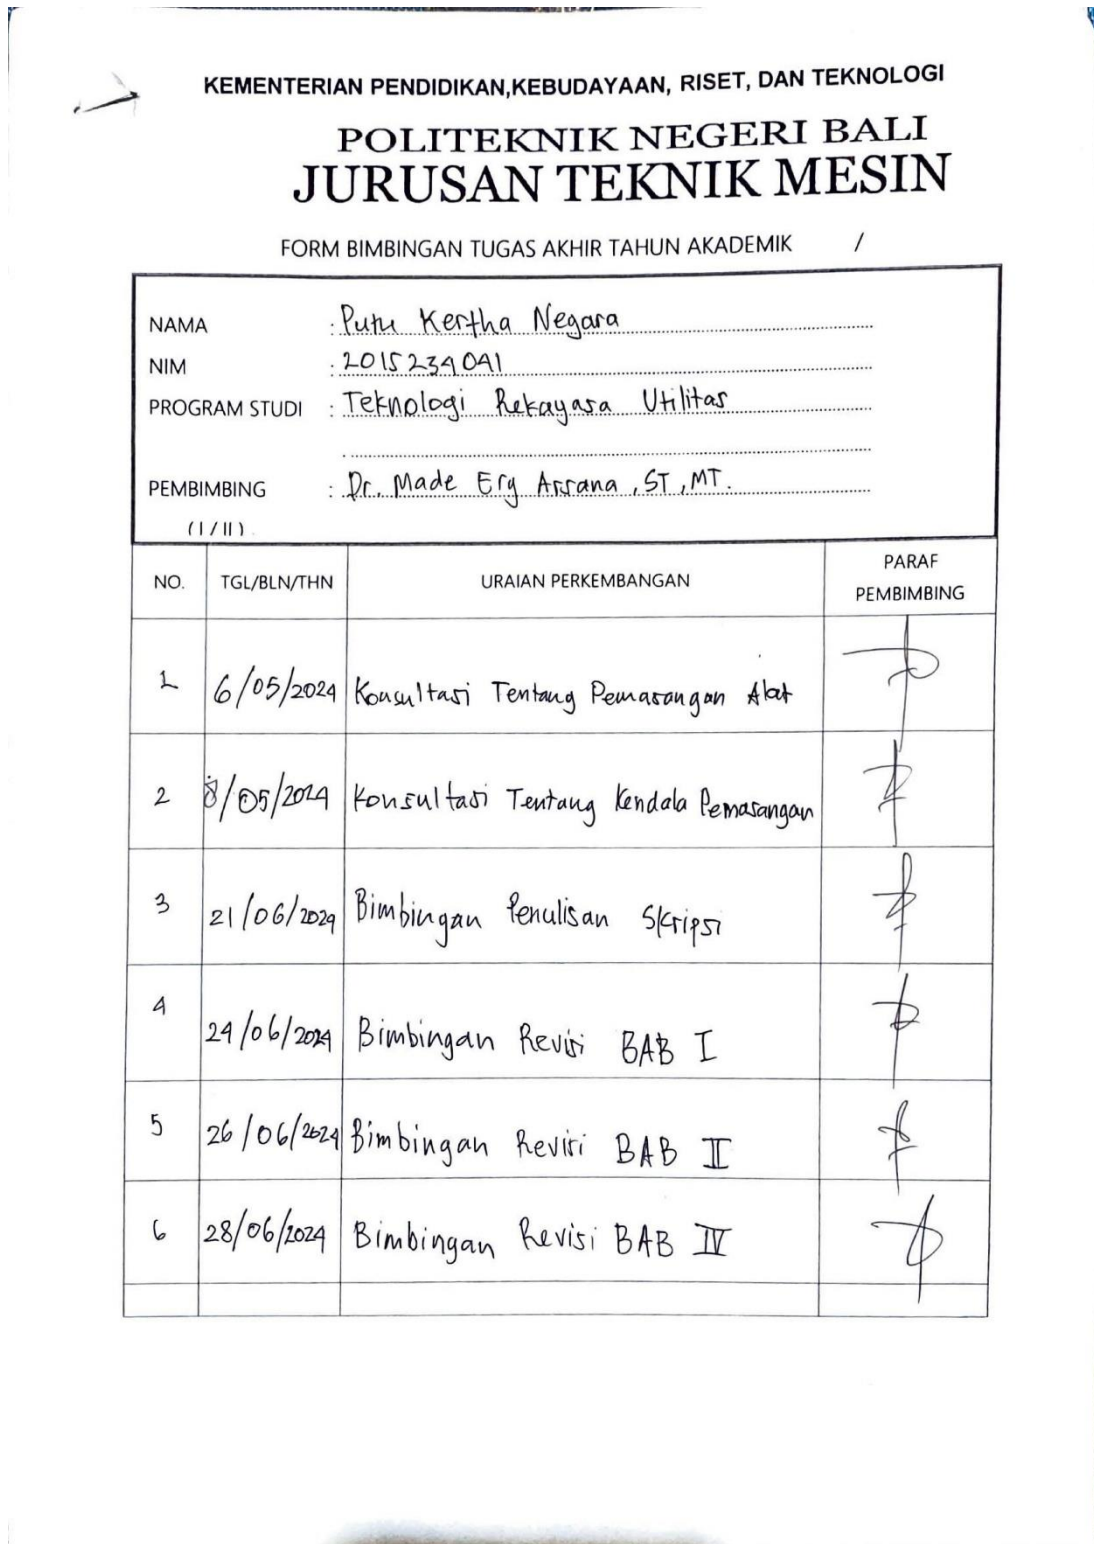 KEMENTERIAN PENDIDIKAN,KEBUDAYAAN, RISET, DAN TEKNOLOGI
POLITEKNIK NEGERI BALI
JURUSAN TEKNIK MESIN
FORM BIMBINGAN TUGAS AKHIR TAHUN AKADEMIK /
NAMA : Putu Kertha Negara
NIM : 2015234041
PROGRAM STUDI : Teknologi Rekayasa Utilitas
PEMBIMBING : Dr. Made Ery Arsana, ST, MT.
(I/II)
NO. TGL/BLN/THN URAIAN PERKEMBANGAN PARAF PEMBIMBING
1 6/05/2024 Konsultasi Tentang Pemasangan Alat
2 8/05/2024 Konsultasi Tentang Kendala Pemasangan
3 21/06/2024 Bimbingan Penulisan Skripsi
4 24/06/2024 Bimbingan Revisi BAB I
5 26/06/2024 Bimbingan Revisi BAB II
6 28/06/2024 Bimbingan Revisi BAB IV